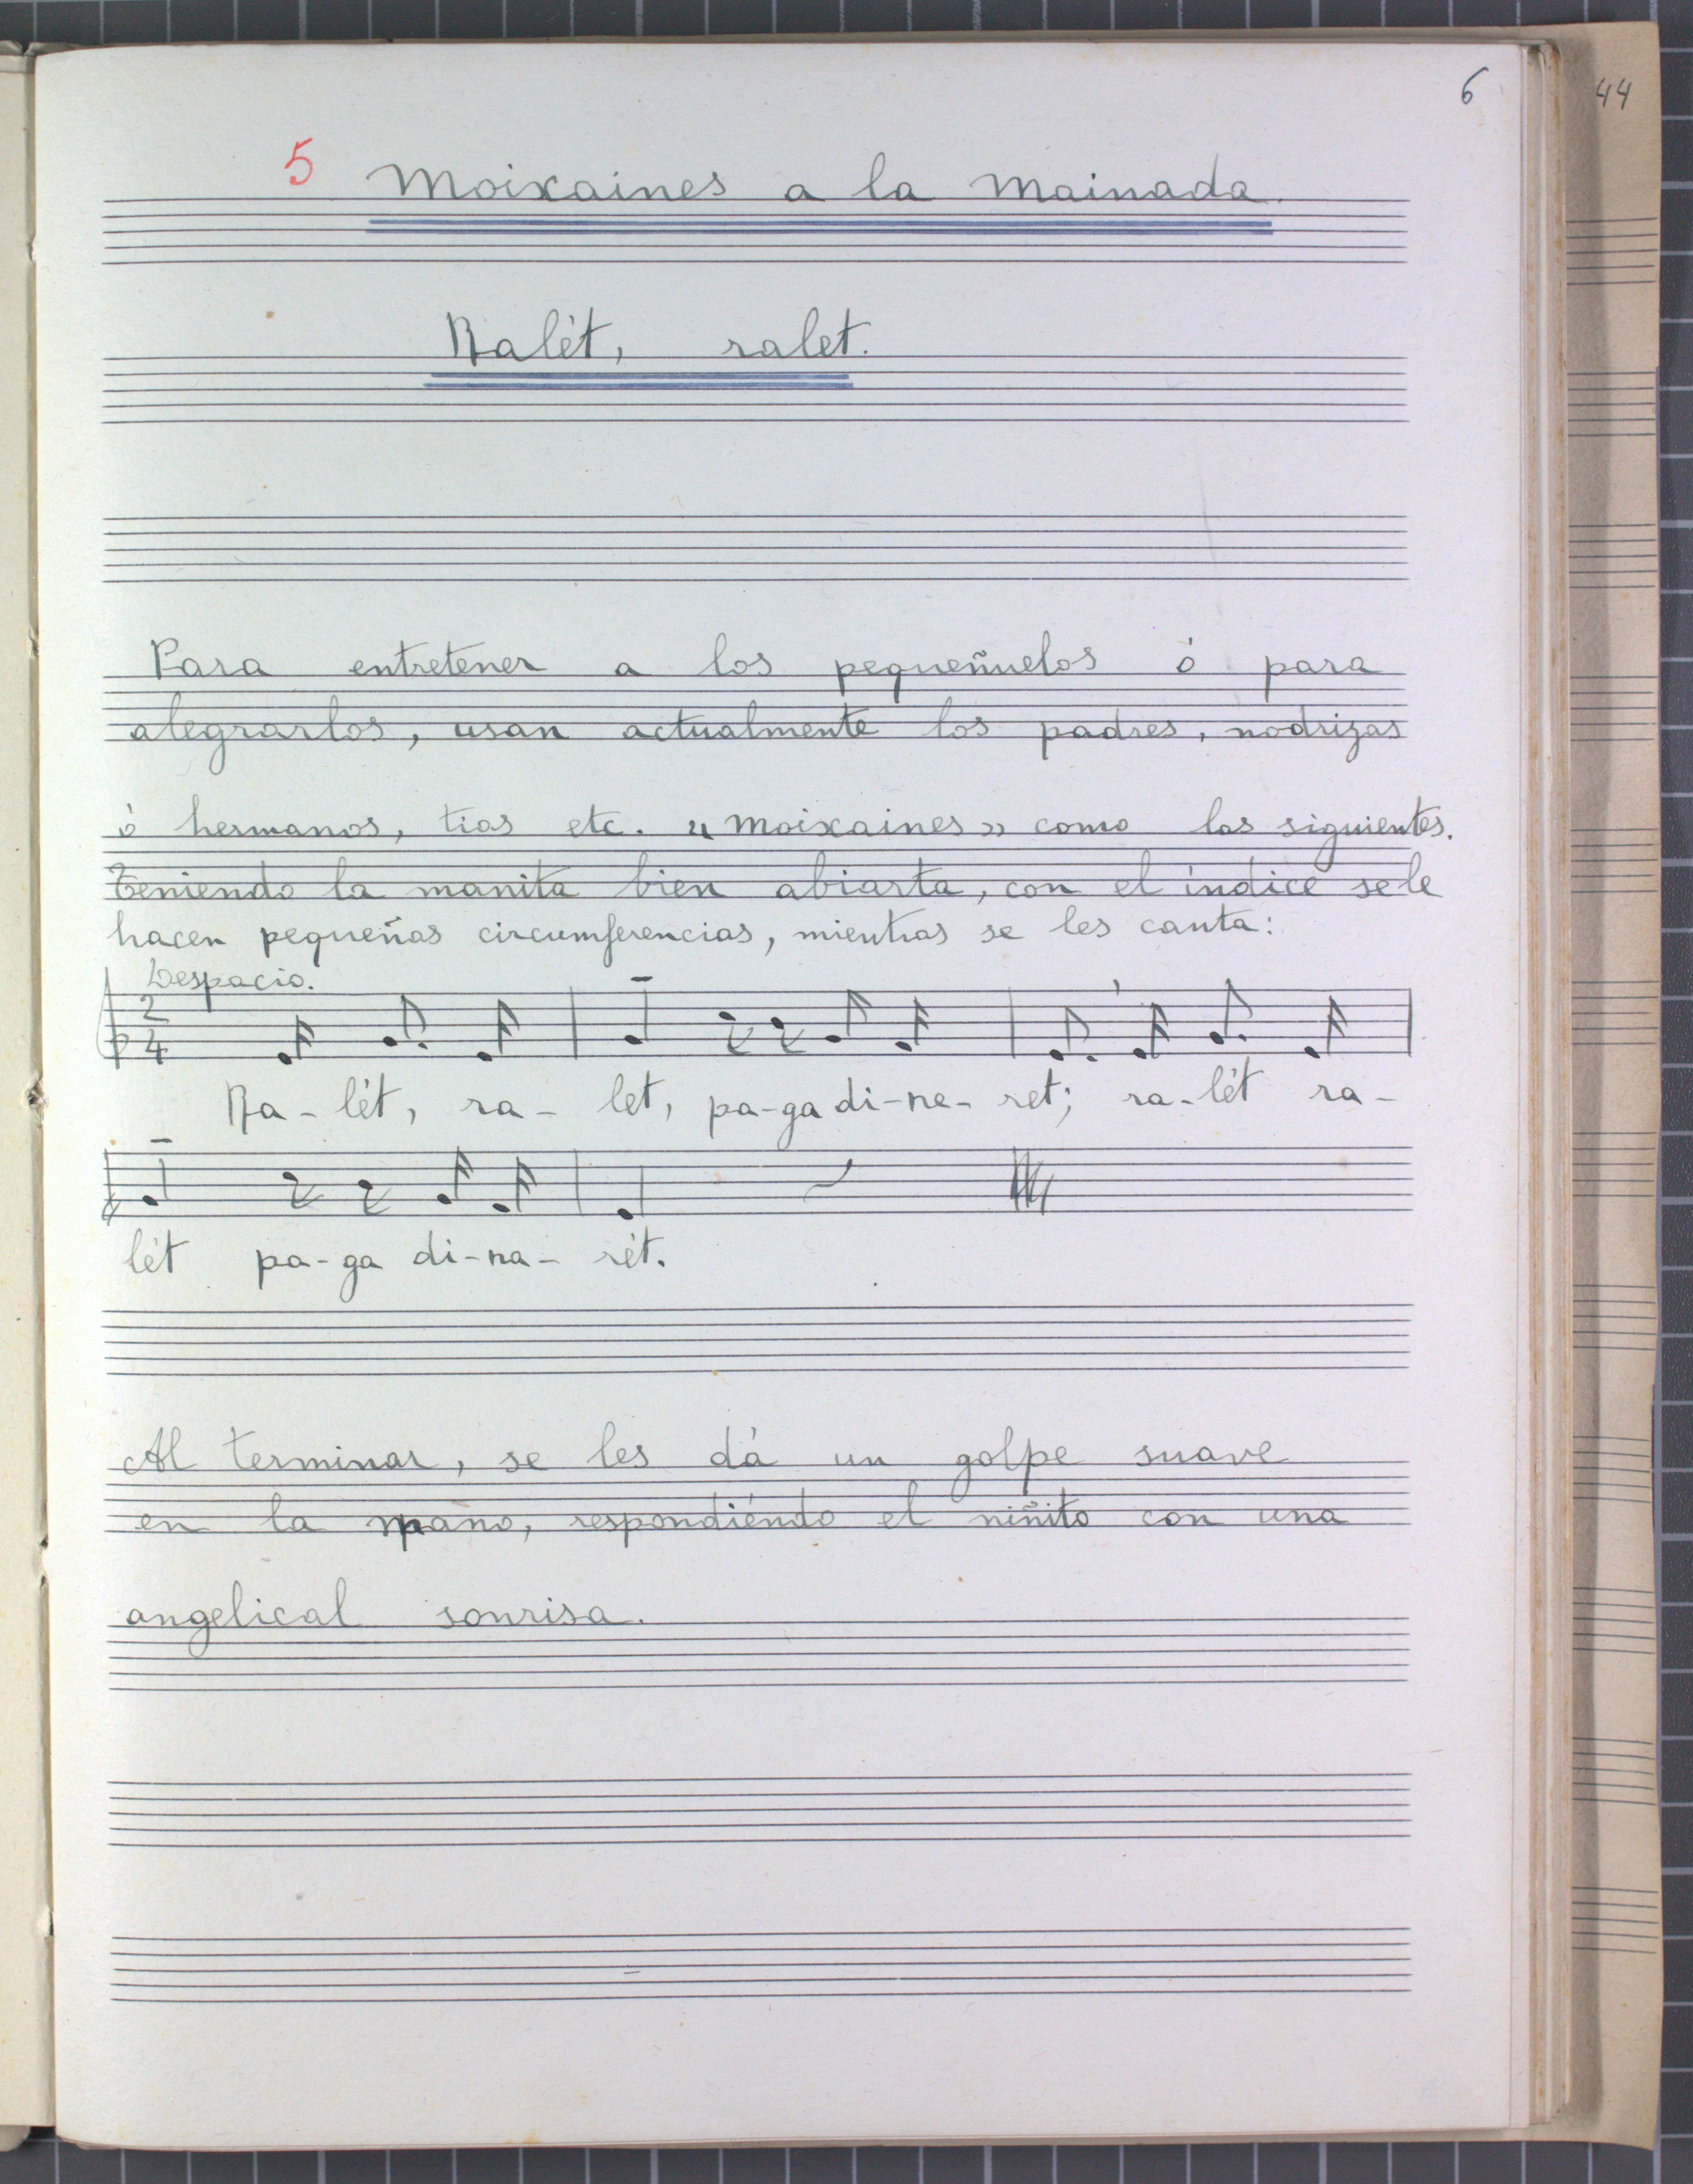 6
44
5 Moixaines a la mainada.
Ralét, ralet.
Para entretener a los pequeñuelos ó para
alegrarlos, usan actualmente los padres, nodrizas
ó hermanos, tias etc. "moixaines" como las siguientes.
Teniendo la manita bien abiarta, con el índice se le
hacen pequeñas circumferencias, mientras se les canta:
Despacio.
2
4
Ra-lét, ra- let, pa-ga di-ne- ret; ra-lét ra-
lét pa-ga di-na- rét.
Al terminar, se les dá un golpe suave
en la mano, respondiéndo el niñito con una
angelical sonrisa.